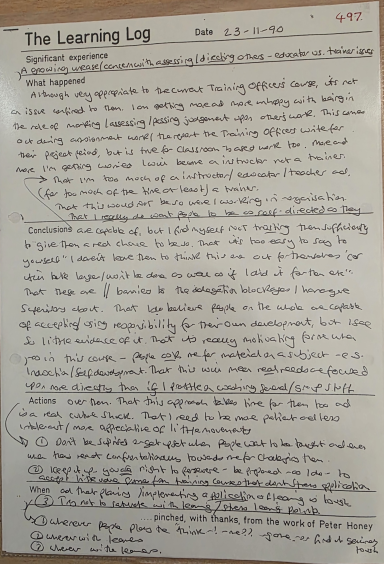 497
The Learning Log Date 23-11-90
Significant experience
A growing unease/concern with assessing/directing others - educator vs. trainer issues
What happened
Although very appropriate to the current Training Officers' Course, it's not
an issue confined to them. I am getting more and more unhappy with being in
the role of marking/assessing/passing judgement upon others work. This comes
out during assignment work/the report the Training Officers write for
their project period, but is true for classroom based work too. More and
more I'm getting worried I will become an instructor not a trainer.
→ That I'm too much of an instructor/educator/teacher and
(for too much of the time at least) a trainer.
That this would not be so were I working in an organisation
That I really do want people to be as self-directed as they
Conclusions are capable of, but I find myself not trusting them sufficiently
to give them a real chance to be so. That it's too easy to say to
yourself "I daren't leave them to think this one out for themselves 'cos
it'll take longer/won't be done as well as if I did it for them etc".
That these are // barriers to the delegation blockages I harangue
Supervisors about. That I do believe people on the whole are capable
of accepting/using responsibility for their own development, but I see
so little evidence of it. That it's really motivating for me when
on this course - people ask me for material on a subject - e.g.
Induction/Self development. That this will meet real needs are focused
upon more directly than if I
Actions over them. That this approach takes time for them too and
is a real culture shock. That I need to be more patient and less
intolerant/more appreciative of little movements
① Don't be surprised or get upset when people want to be taught and even
react confrontationally towards me for challenging them.
② Keep it up you're right to persevere - be prepared - as I do - to
accept training courses that don't stress application
When and that planning/implementing a application of learning is tough
③ Try not to saturate with learning/stress learning points
....pinched, with thanks, from the work of Peter Honey
① wherever people
② whenever with learners
③ whenever with learners.